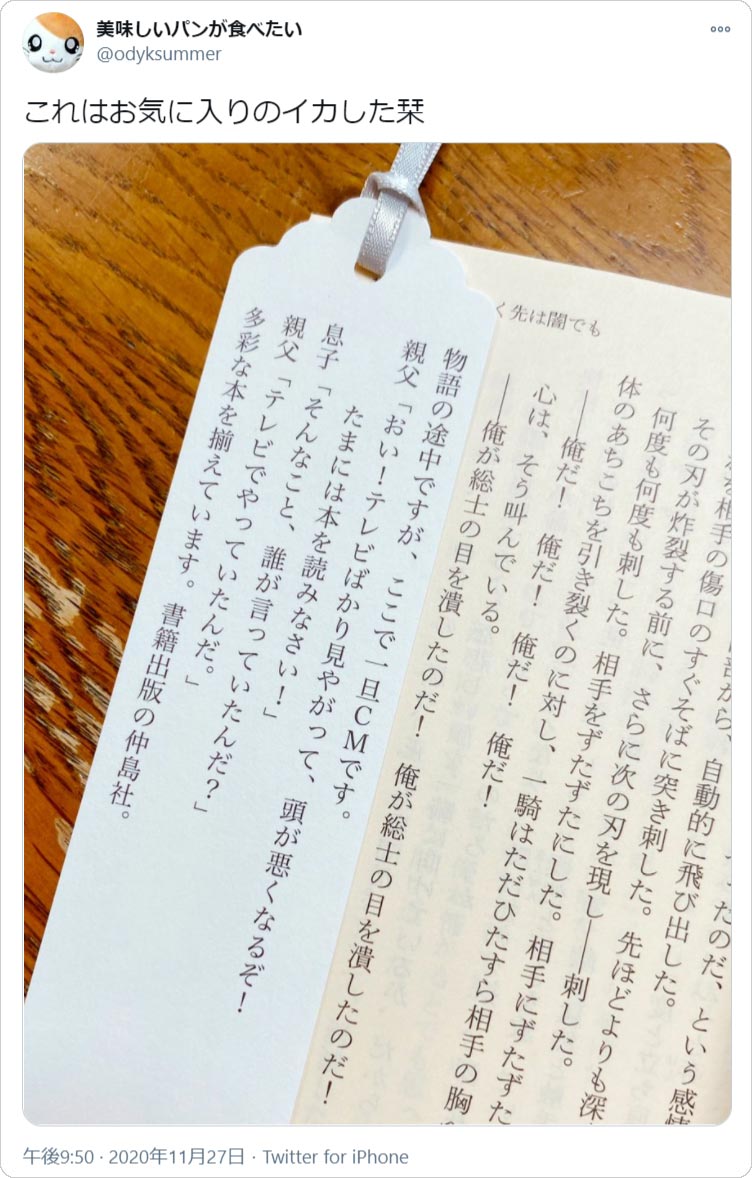 美味しいパンが食べたい
@odyksummer
これはお気に入りのイカした栞
く先は闇でも
相手の傷口のすぐそばに突き刺した。
その刃が炸裂する前に、さらに次の刃を現し――刺した。
何度も何度も刺した。相手をずたずたにした。相手にずたずた
体のあちこちを引き裂くのに対し、一騎はただひたすら相手の胸
――俺だ! 俺だ! 俺だ! 俺だ!
心は、そう叫んでいる。
――俺が総士の目を潰したのだ! 俺が総士の目を潰したのだ!
物語の途中ですが、ここで一旦CMです。
親父「おい!テレビばかり見やがって、頭が悪くなるぞ!
たまには本を読みなさい!」
息子「そんなこと、誰が言っていたんだ?」
親父「テレビでやっていたんだ。」
多彩な本を揃えています。書籍出版の仲島社。
午後9:50 · 2020年11月27日 · Twitter for iPhone